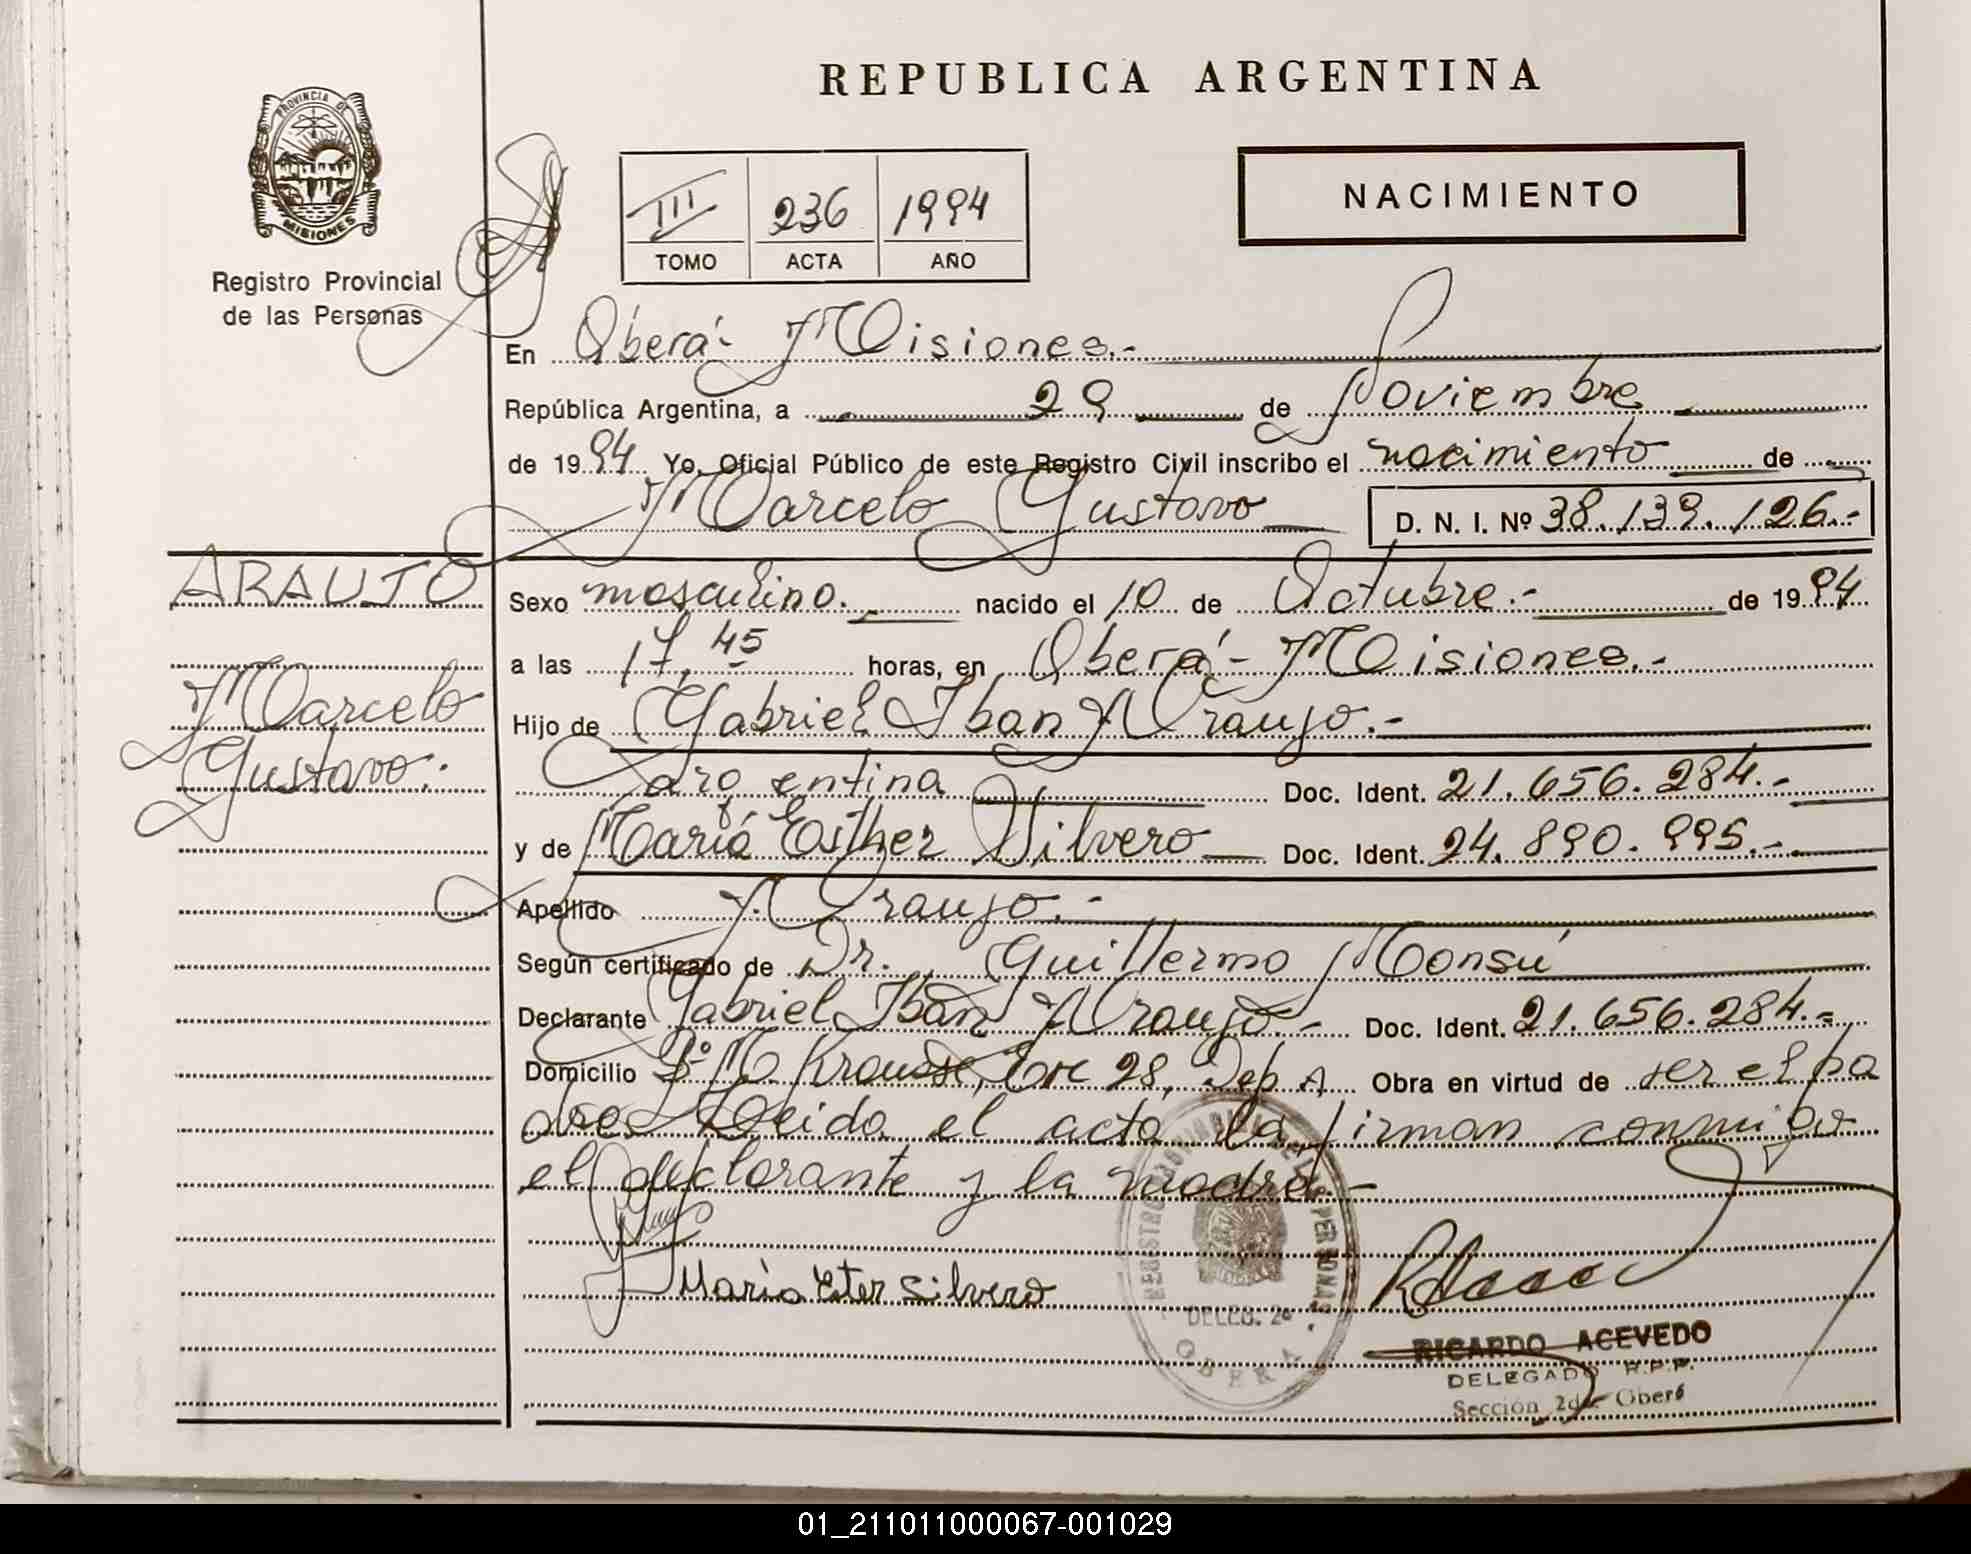 REPUBLICA ARGENTINA
PROVINCIA DE
MISIONES
Registro Provincial
de las Personas
III 236 1994
TOMO ACTA AÑO
NACIMIENTO
En Oberá - Misiones.-
República Argentina, a 29 de Noviembre
de 1994 Yo, Oficial Público de este Registro Civil inscribo el nacimiento de
Marcelo Gustavo D. N. I. Nº 38.139.126.-
ARAUJO
Marcelo
Gustavo.-
Sexo masculino. nacido el 10 de Octubre.- de 1994
a las 17,45 horas, en Oberá - Misiones.-
Hijo de Gabriel Iban Araujo.-
argentina Doc. Ident. 21.656.284.-
y de María Esther Silvero Doc. Ident. 24.890.995.-
Apellido Araujo.-
Según certificado de Dr. Guillermo Monsú
Declarante Gabriel Iban Araujo.- Doc. Ident. 21.656.284.-
Domicilio Bº M. Krausse, Esc 28, Dep A Obra en virtud de ser el pa
dre. Leida el acta la firman conmigo
el declarante y la madre.-
Maria Ester Silvero
REGISTRO PROVINCIAL DE LAS PERSONAS
DELEG. 2ª
OBERA
RICARDO ACEVEDO
DELEGADO R.P.P.
Sección 2da. Oberá
01_211011000067-001029